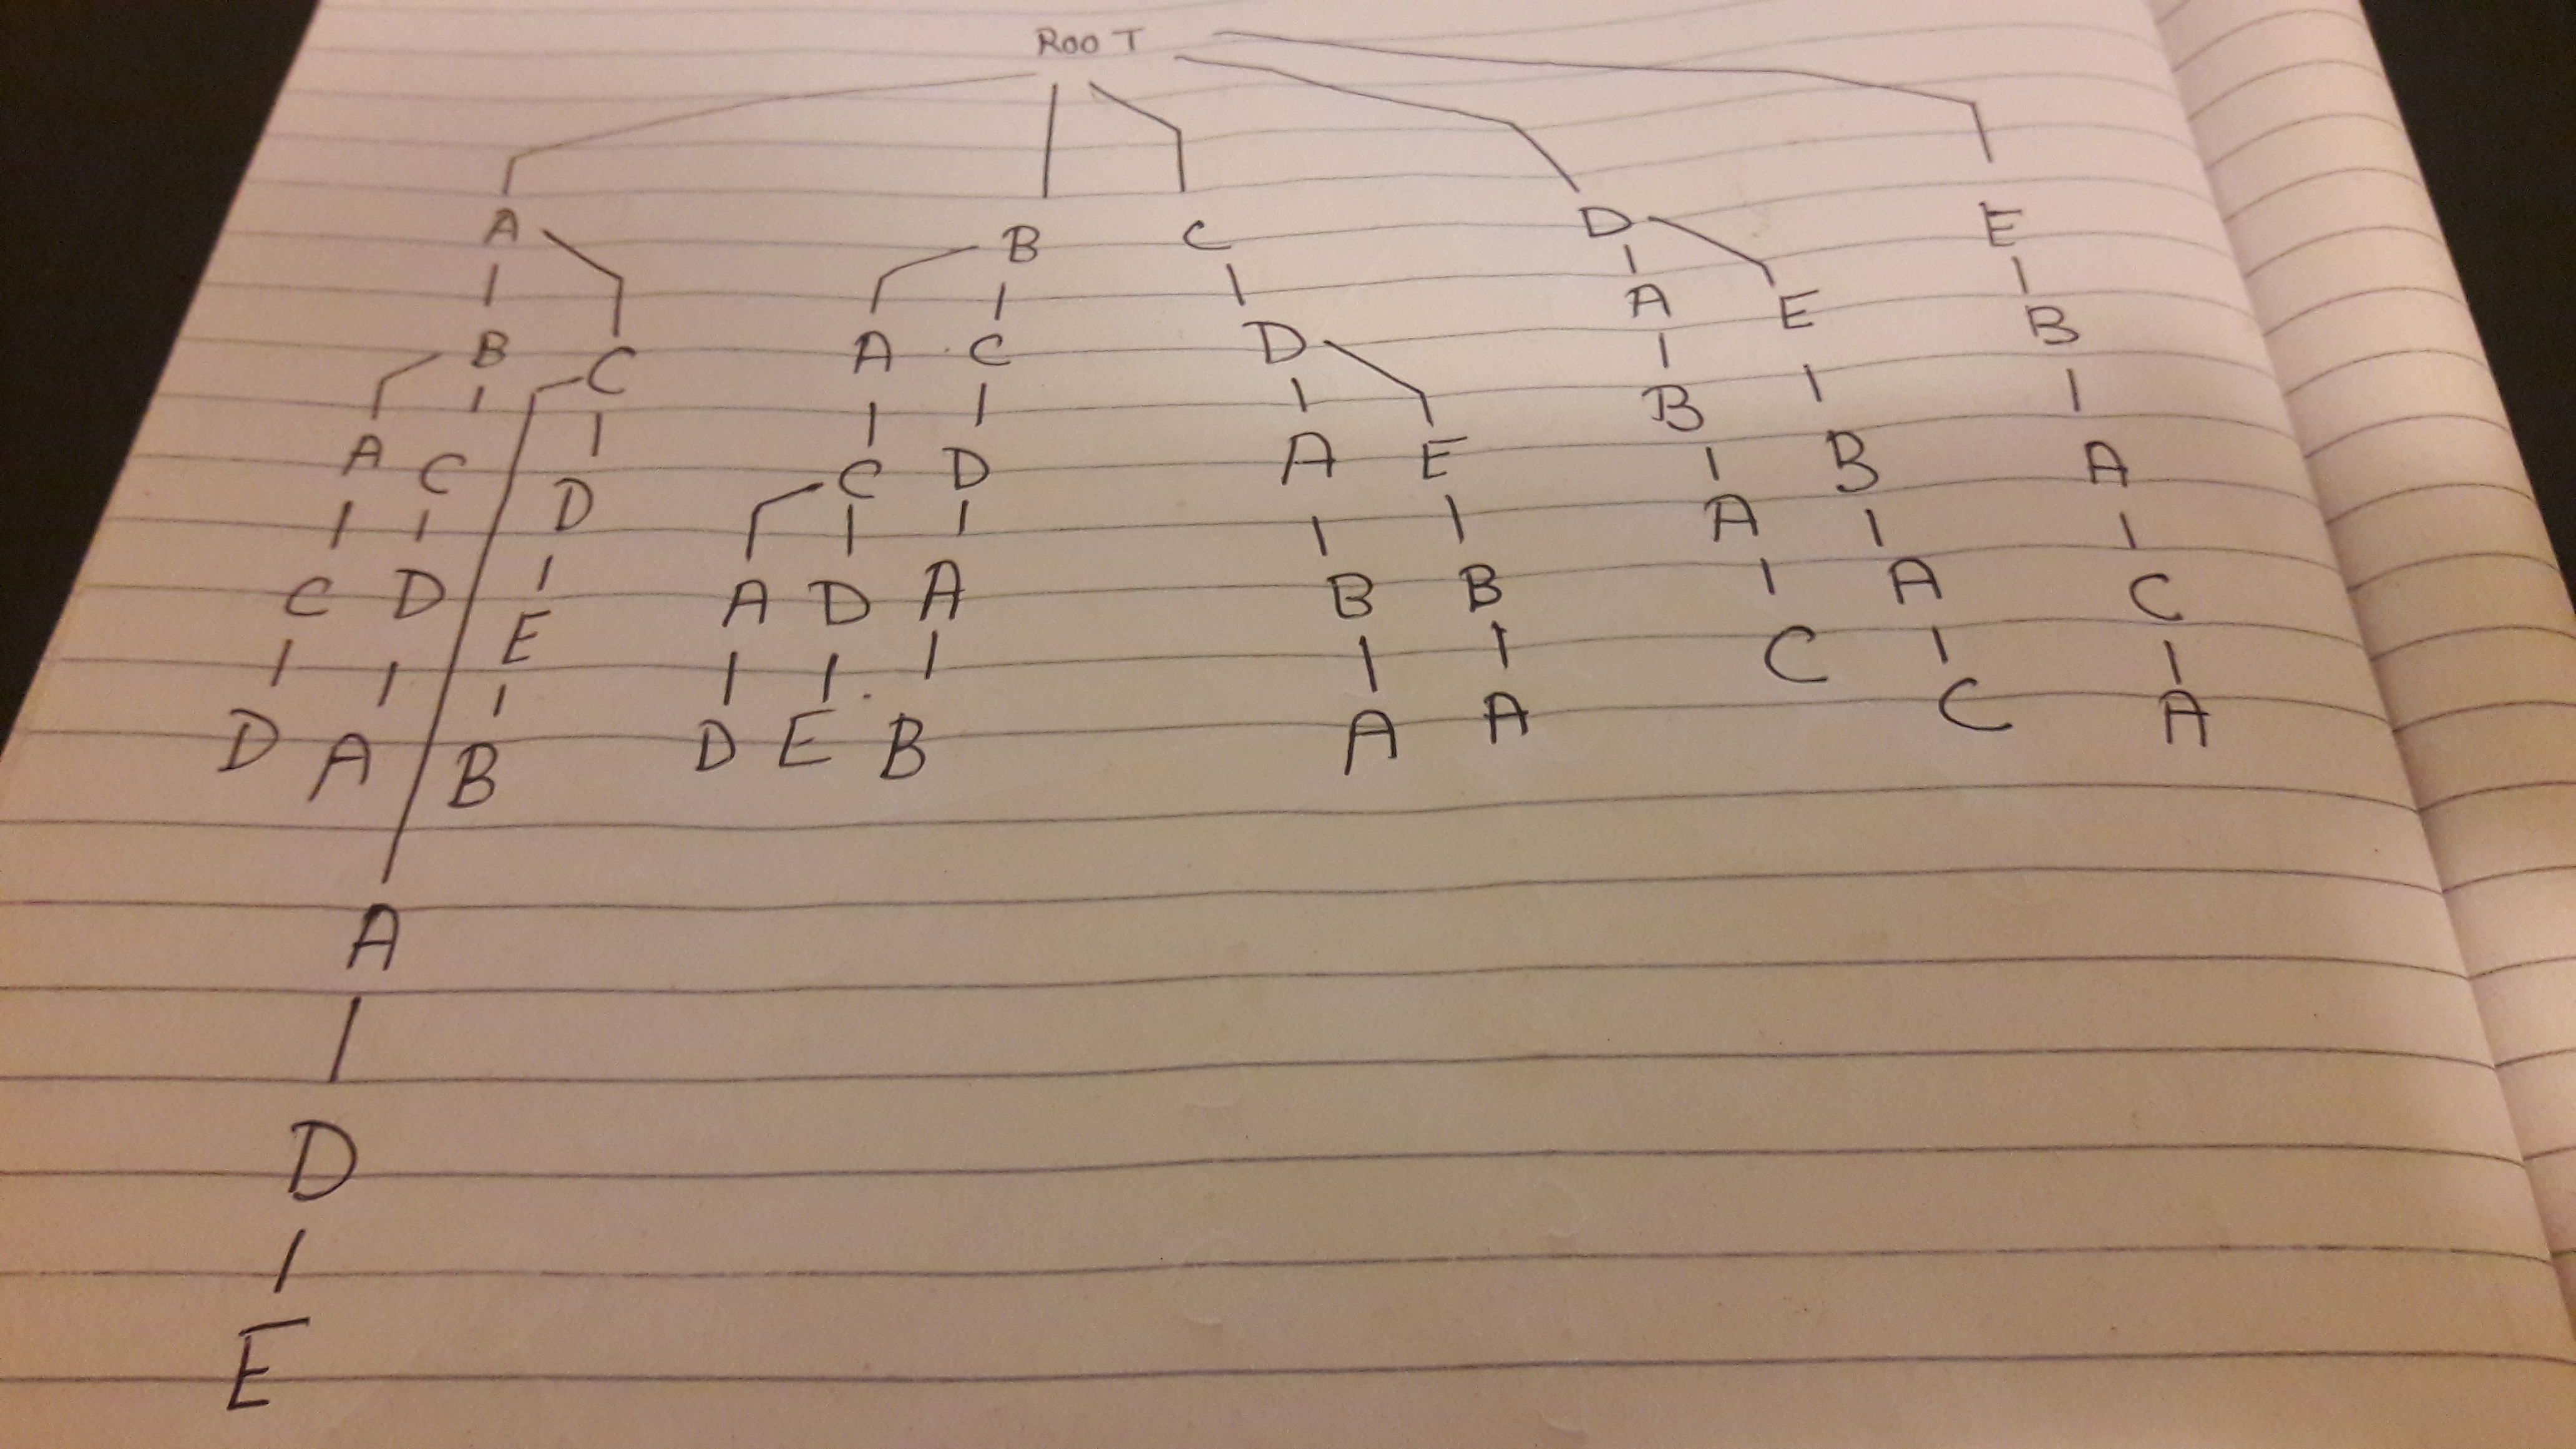 ROOT
A B C D E
B C A C D A E B
A C D C D A E B B A
C D E A D A B B A A C
D A B D E B A A C C A
A
D
E